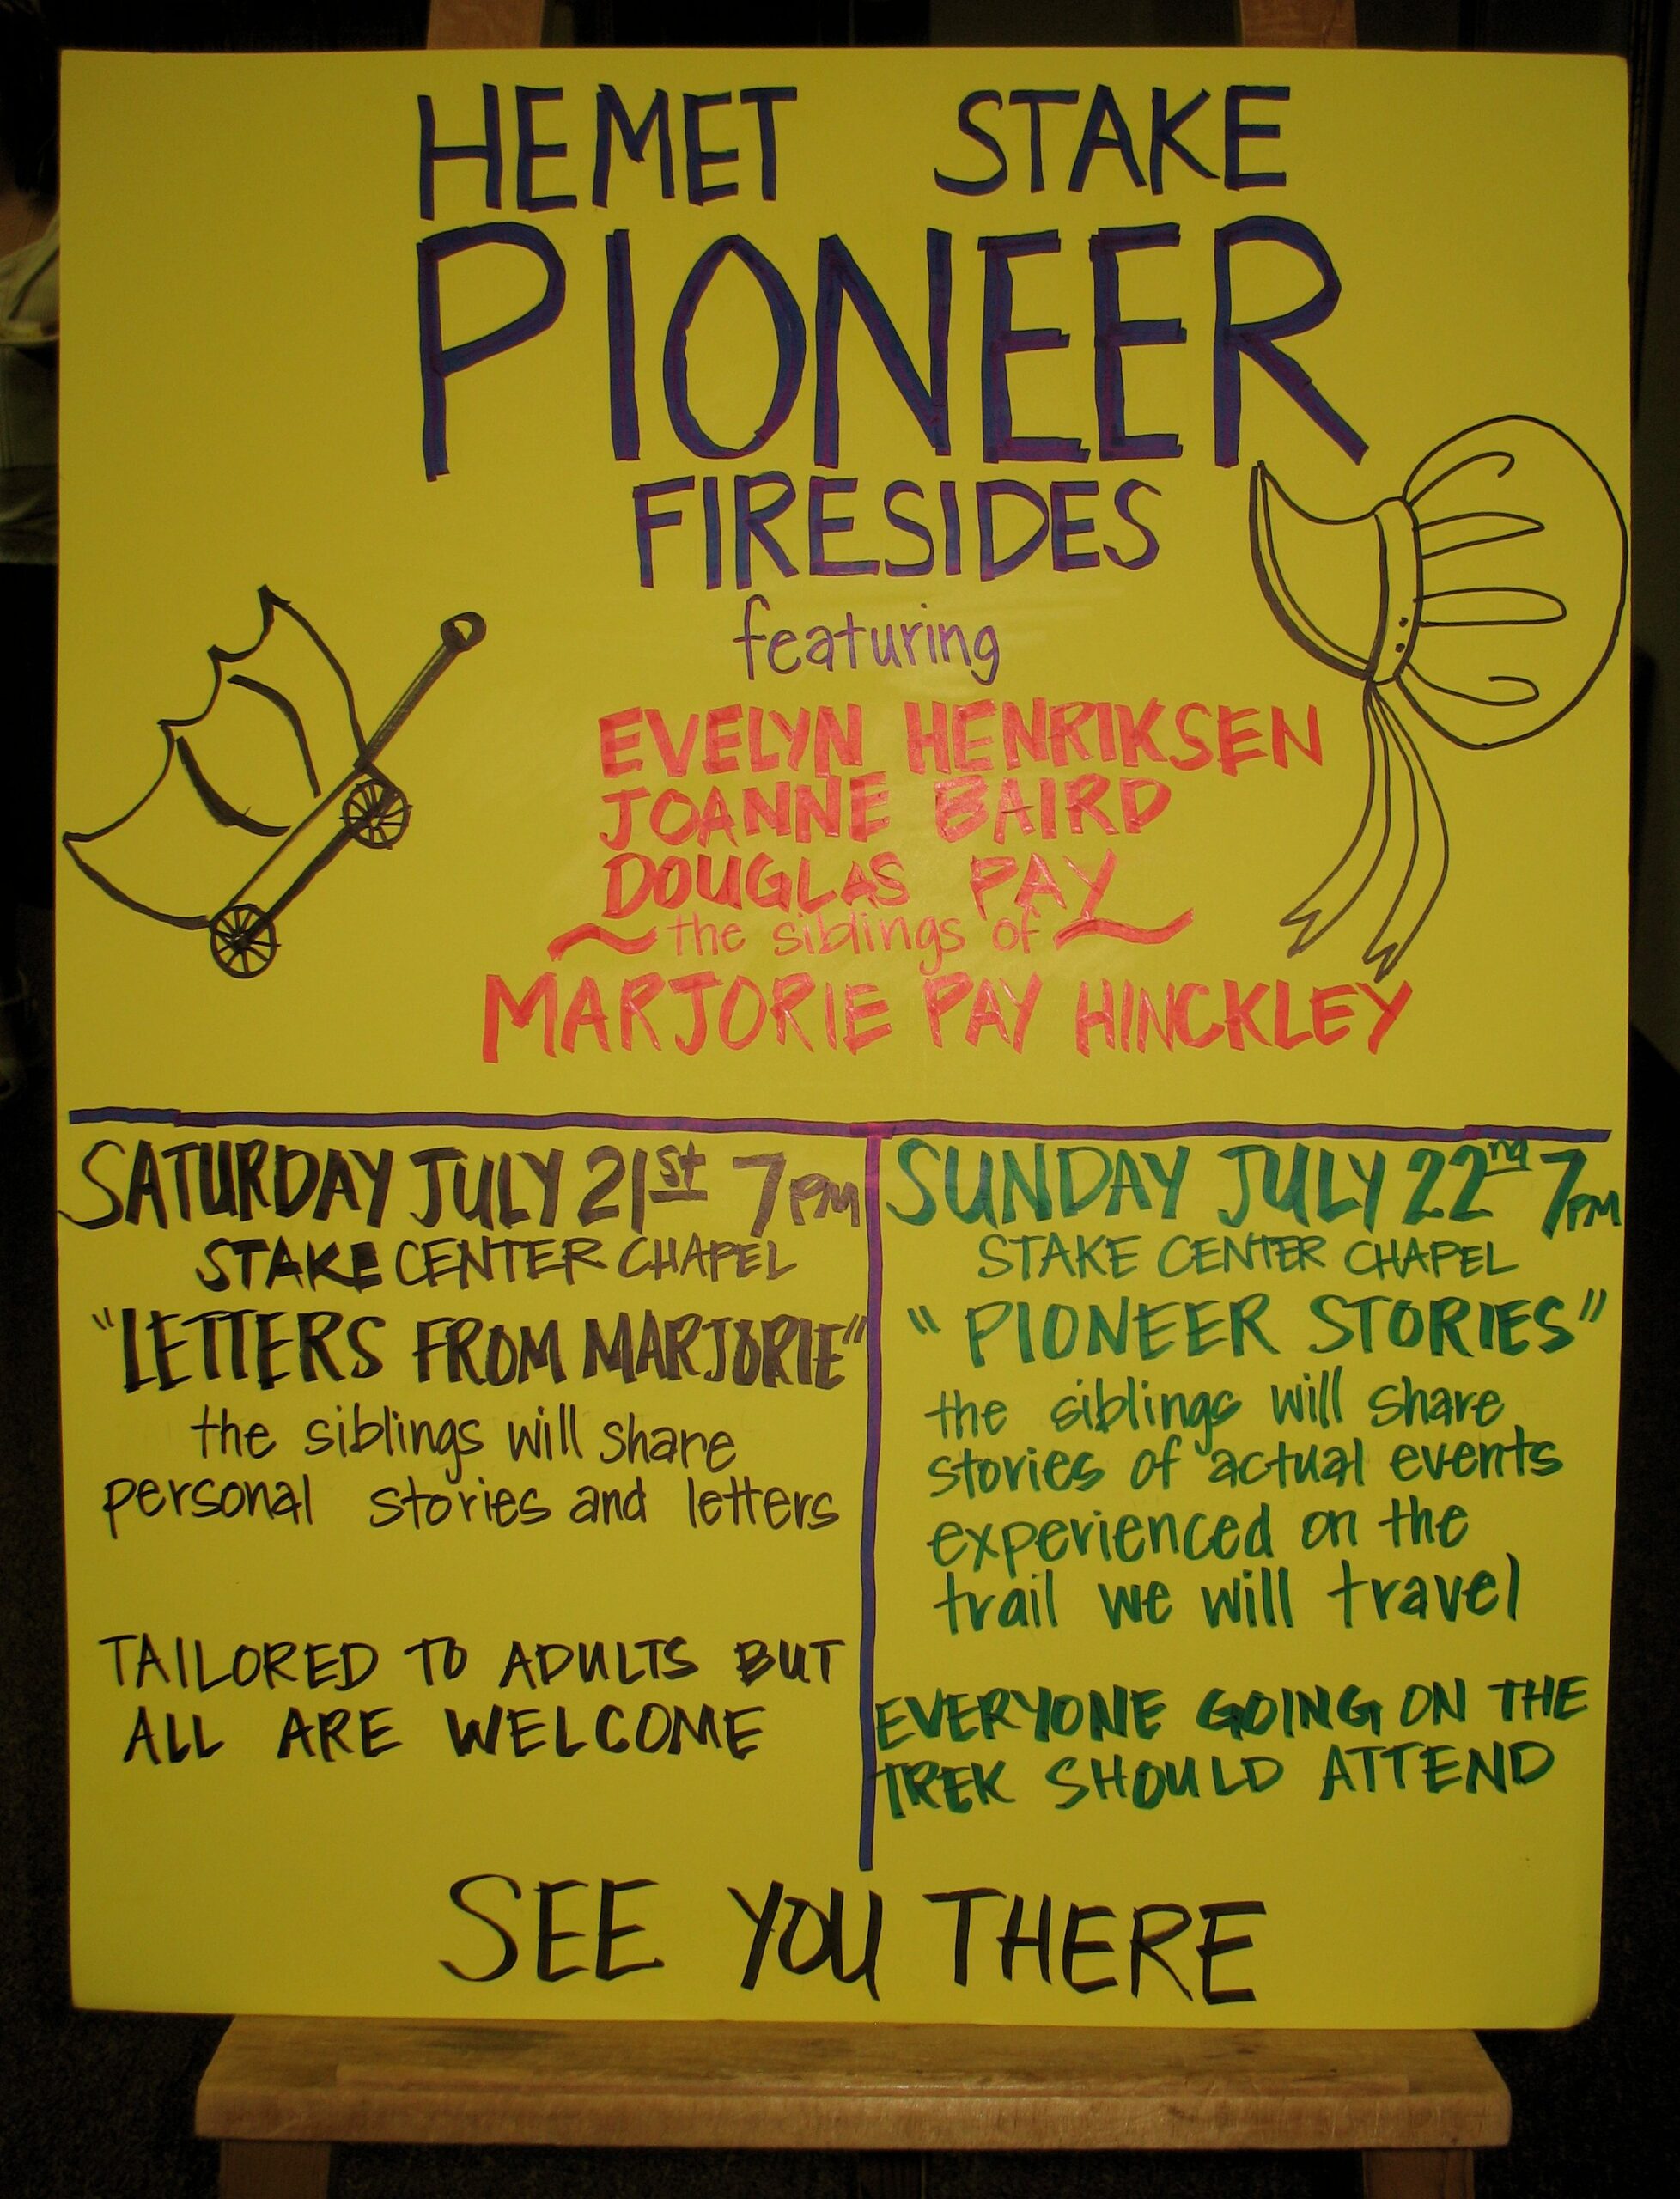 HEMET STAKE
PIONEER
FIRESIDES
featuring
EVELYN HENRIKSEN
JOANNE BAIRD
DOUGLAS PAY
~ the siblings of ~
MARJORIE PAY HINCKLEY
SATURDAY JULY 21st 7PM
STAKE CENTER CHAPEL
"LETTERS FROM MARJORIE"
the siblings will share
personal stories and letters
TAILORED TO ADULTS BUT
ALL ARE WELCOME
SUNDAY JULY 22nd 7PM
STAKE CENTER CHAPEL
"PIONEER STORIES"
the siblings will share
stories of actual events
experienced on the
trail we will travel
EVERYONE GOING ON THE
TREK SHOULD ATTEND
SEE YOU THERE